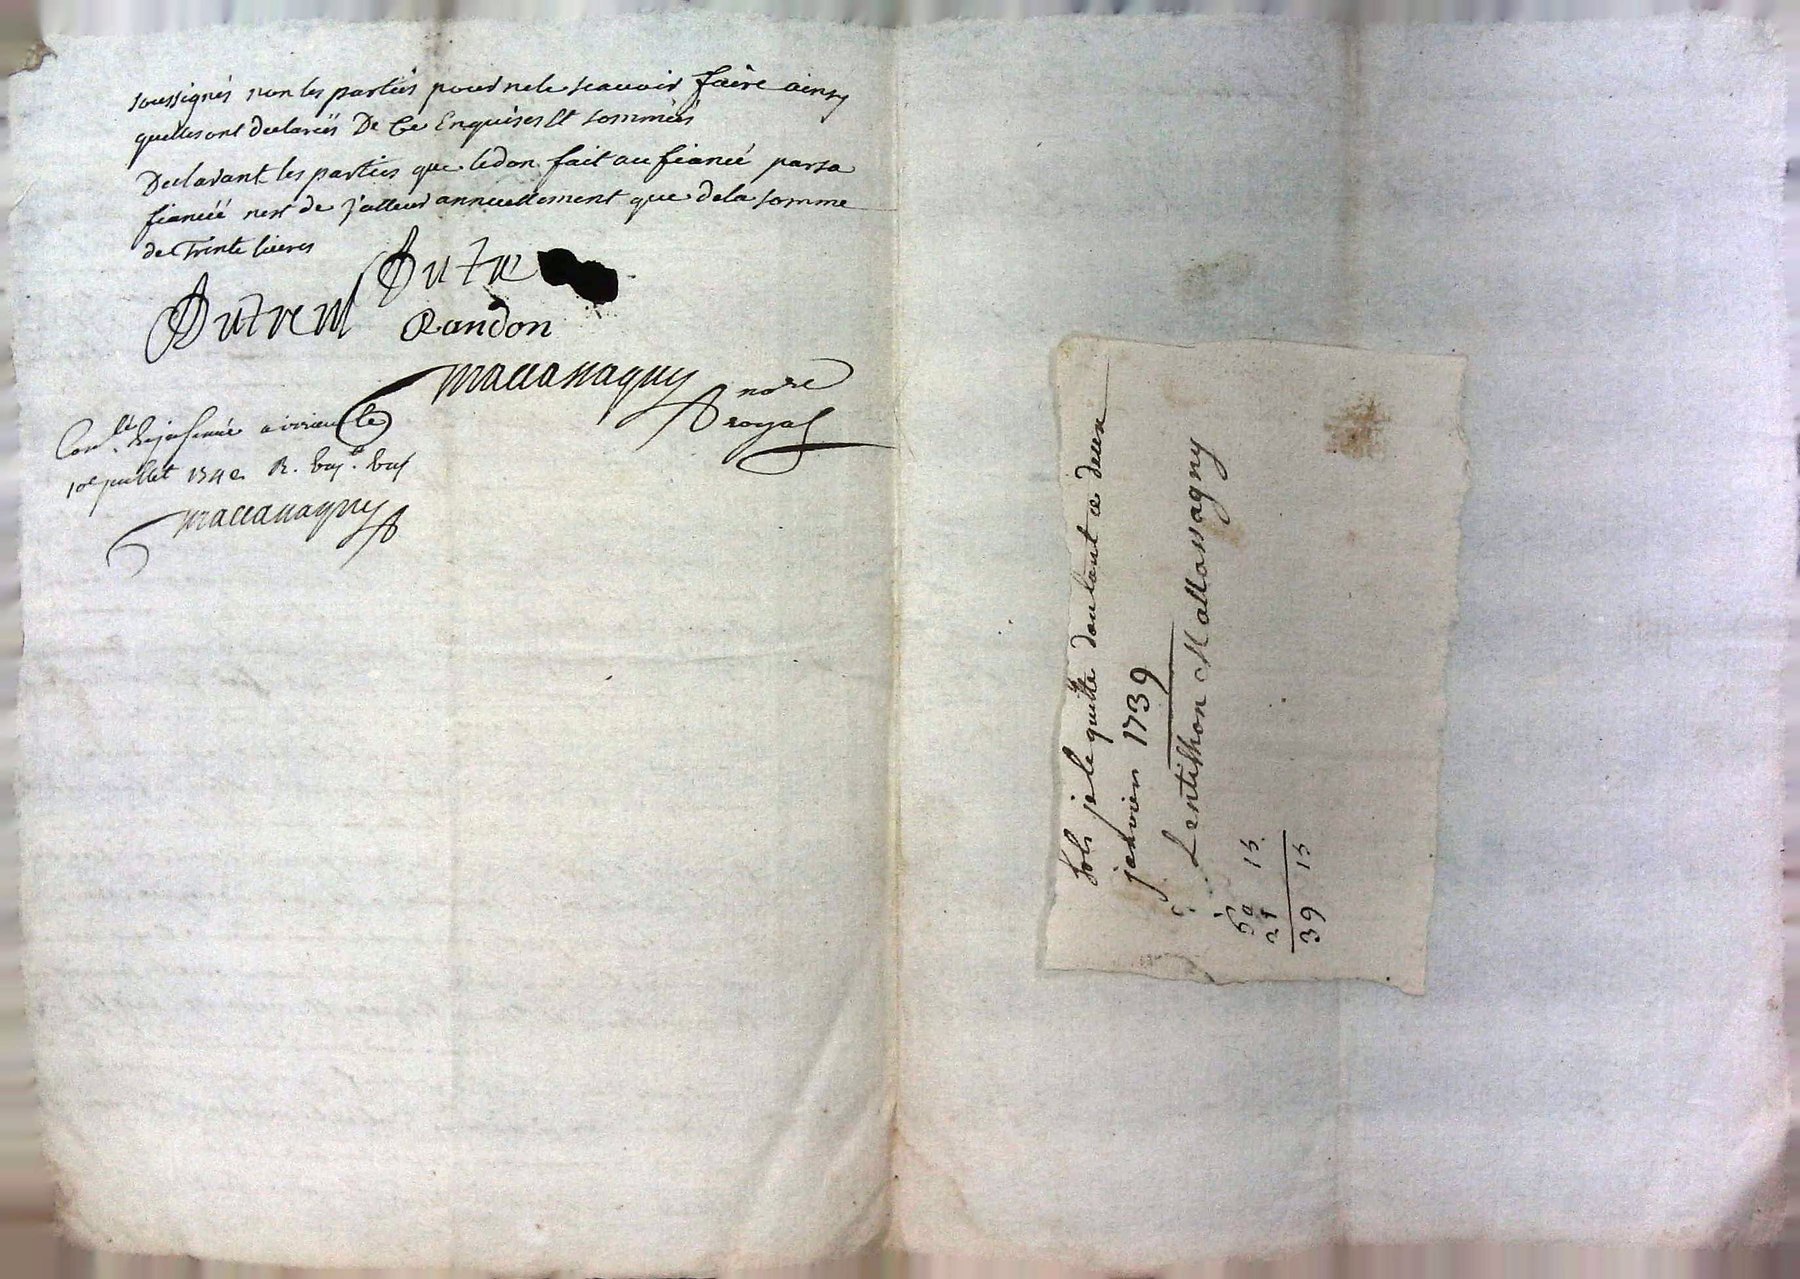 soussignés non les parties pour ne le scavoir faire ainsy
quelles ont declarées De Ce Enquises Et sommées
Declarant les parties que ledon fait au fiancé par sa
fiancéé nest de valleur annuellement que dela somme
de Trente livres
Dutreul Dutre
Randon
Maccassagny no.re
royal
Con.lé a virieu le
10e juillet 1740 R.
Maccassagny
sols je le quitte ce deux
janvier 1739
Lentillon Mallassagny
15
21
39 15